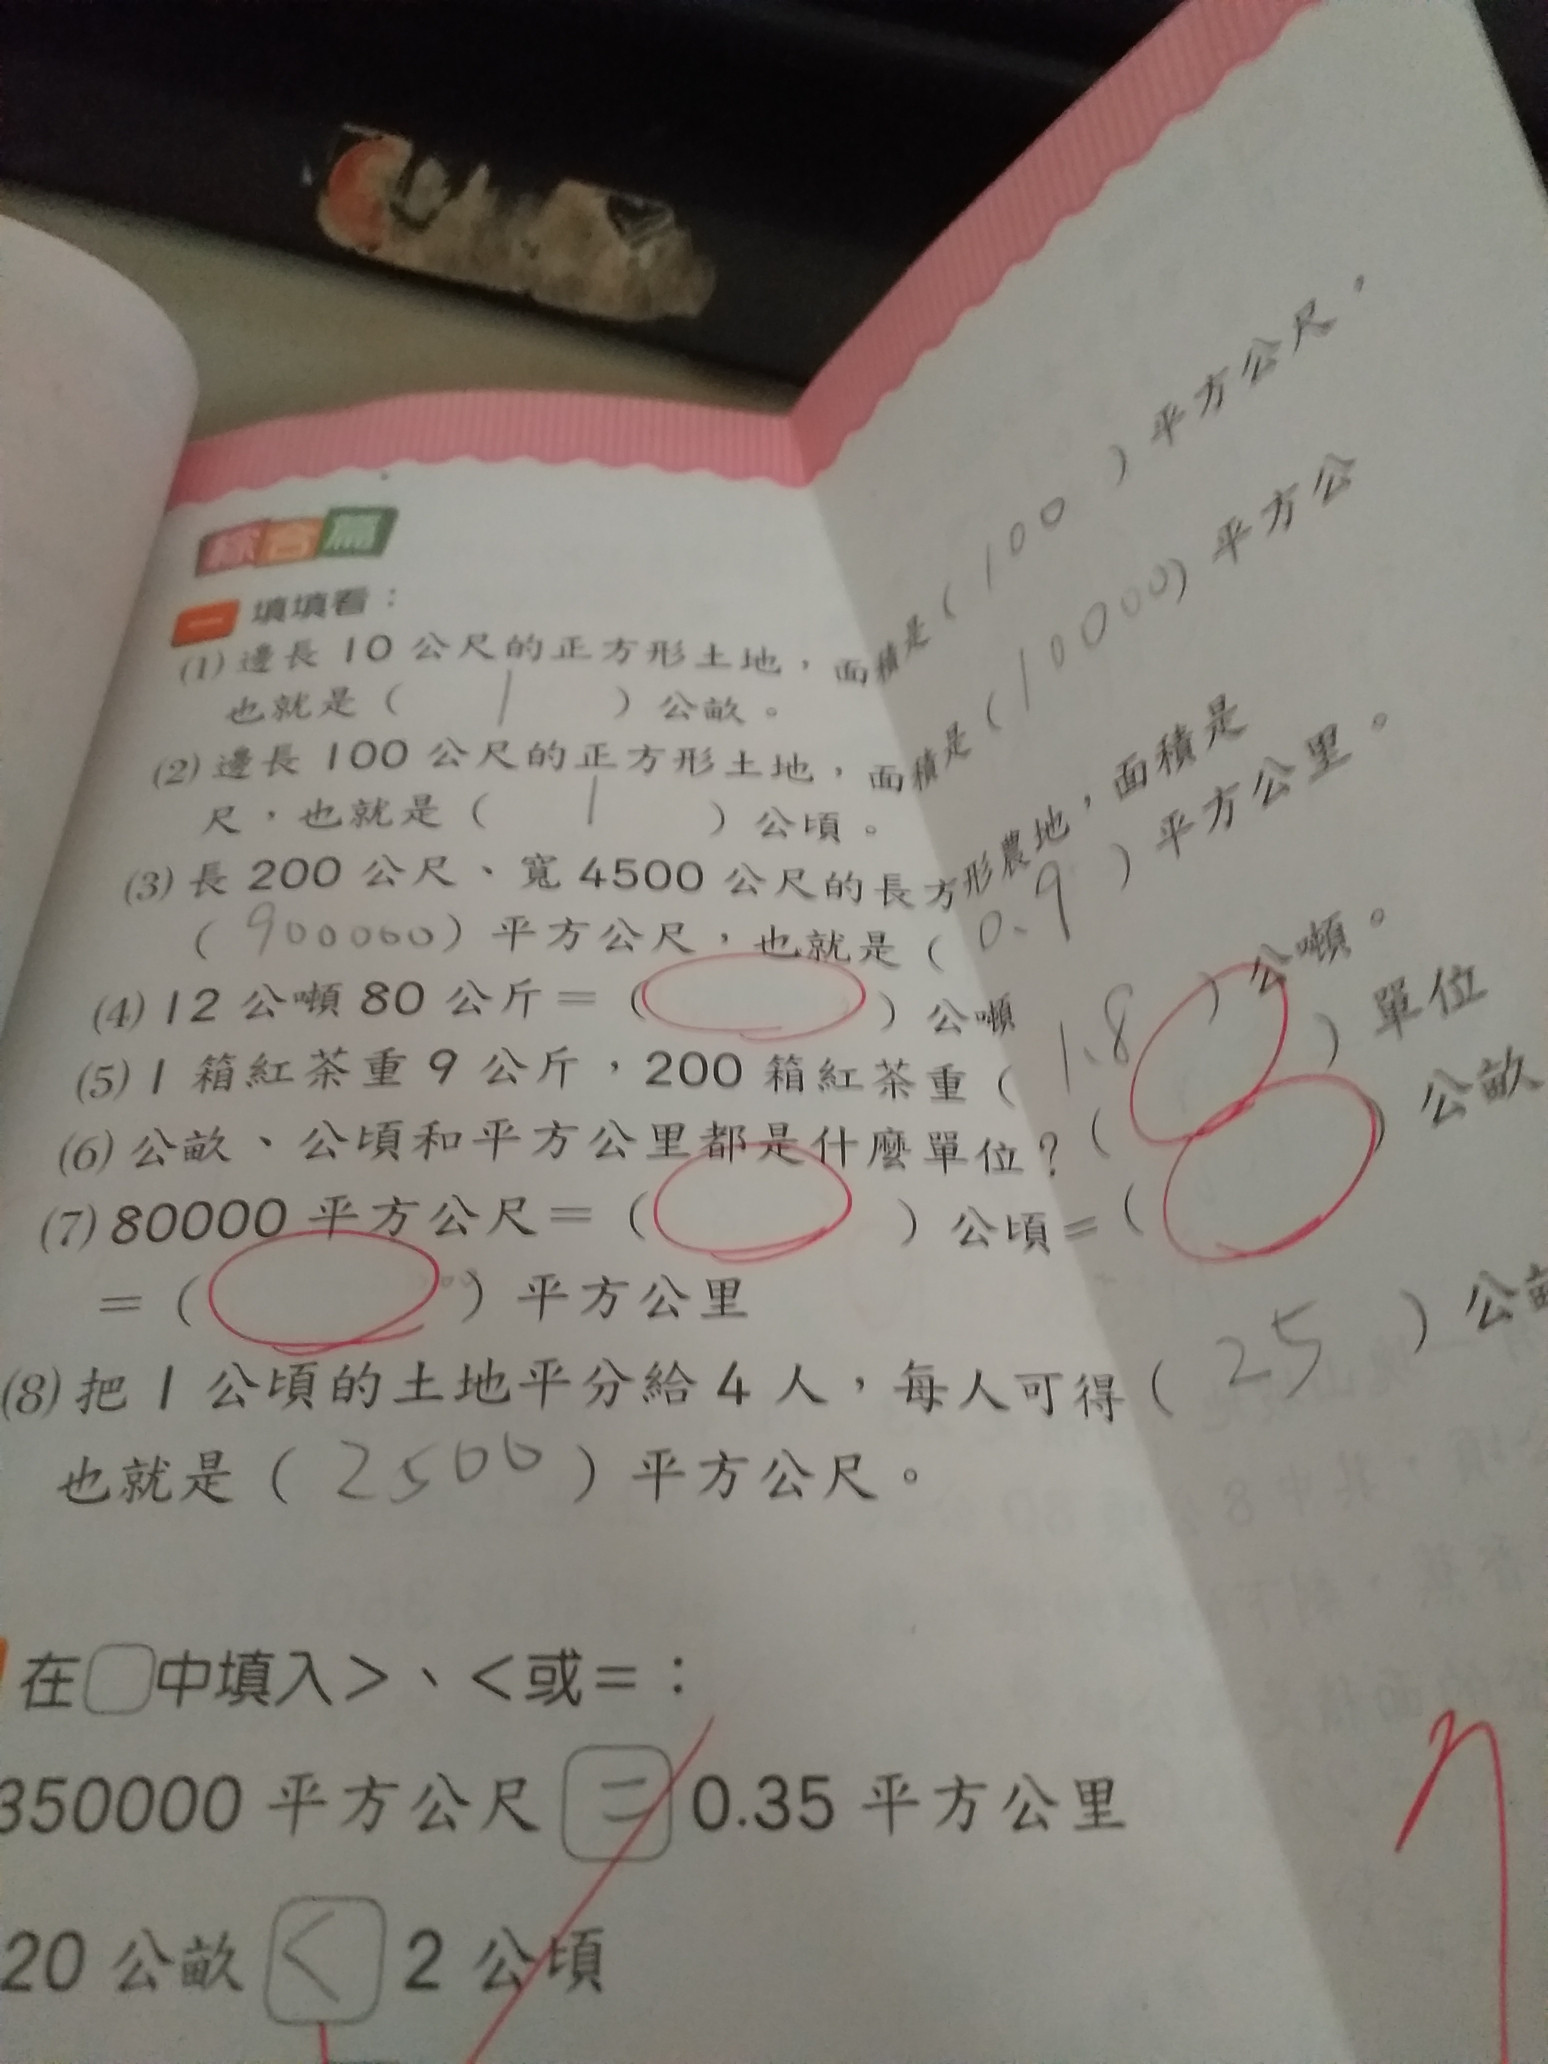 綜合篇
一 填填看：
(1)邊長10公尺的正方形土地，面積是(100)平方公尺，
也就是(1)公畝。
(2)邊長100公尺的正方形土地，面積是(10000)平方公
尺，也就是(1)公頃。
(3)長200公尺、寬4500公尺的長方形農地，面積是
(900000)平方公尺，也就是(0.9)平方公里。
(4)12公噸80公斤＝( )公噸
(5)1箱紅茶重9公斤，200箱紅茶重(1.8)公噸。
(6)公畝、公頃和平方公里都是什麼單位？( )單位
(7)80000平方公尺＝( )公頃＝( )公畝
＝( )平方公里
(8)把1公頃的土地平分給4人，每人可得(25)公畝
也就是(2500)平方公尺。
在□中填入>、<或=：
350000平方公尺 = 0.35平方公里
20公畝 < 2公頃